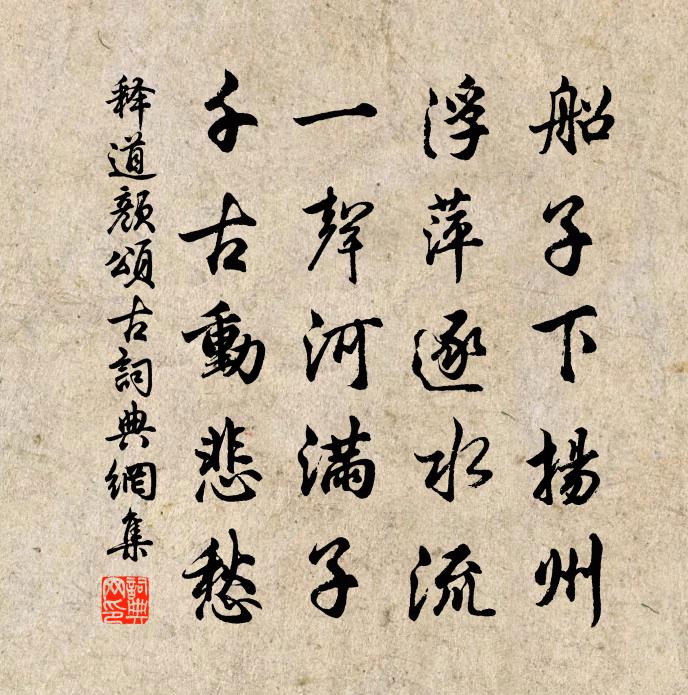 船子下揚州
浮萍逐水流
一聲河滿子
千古動悲愁
释道顏頌古詞典網集
詞典網印